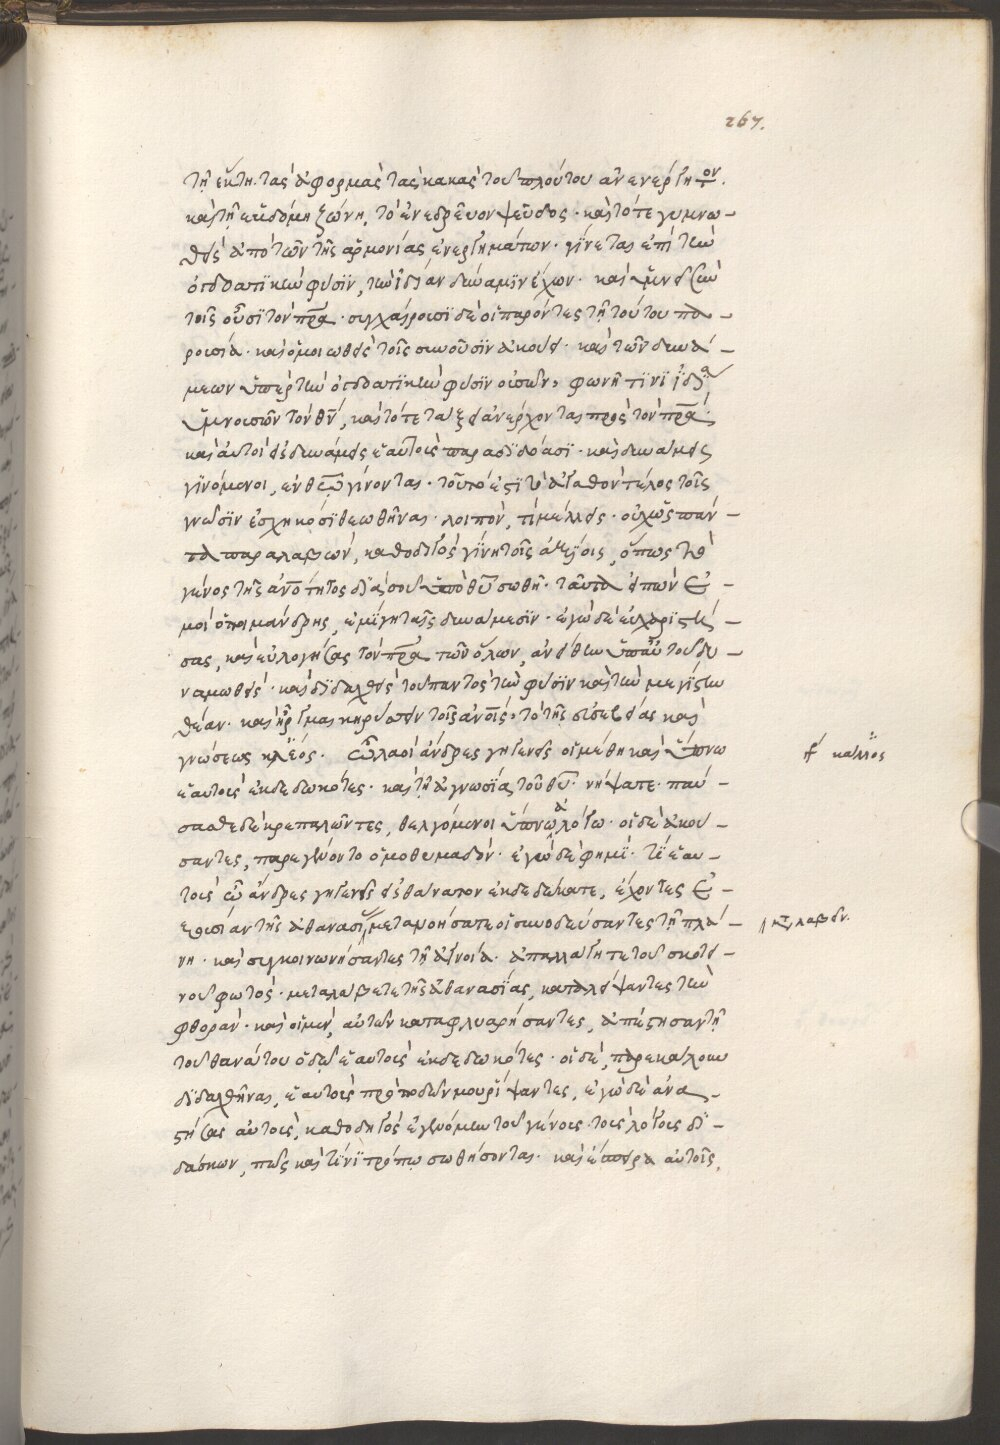 267.
τῇ ἕκτῃ. τὰς ἀφορμὰς τὰς κακὰς τοῦ πλούτου ἀνενεργήτον.
καὶ τῇ ἑβδόμῃ ζώνῃ, τὸ ἐνεδρεῦον ψεῦδος. καὶ τότε γυμνω-
θεὶς ἀπὸ τῶν τῆς ἁρμονίας ἐνεργημάτων. γίνεται ἐπὶ τὴν
ὀγδοατικὴν φύσιν, τὴν ἰδίαν δύναμιν ἔχων. καὶ ὑμνεῖ σὺν
τοῖς οὖσι τὸν πρα. συγχαίρουσι δὲ οἱ παρόντες τῇ τούτου πα-
ρουσίᾳ. καὶ ὁμοιωθεὶς τοῖς συνοῦσιν ἀκούει. καὶ τῶν δυνά-
μεων ὑπὲρ τὴν ὀγδοατικὴν φύσιν οὐσῶν, φωνῇ τινι ἰδίᾳ
ὑμνουσῶν τὸν θν, καὶ τότε τάξει ἀνέρχονται πρὸς τὸν πρα.
καὶ αὐτοὶ εἰς δυνάμεις ἑαυτοὺς παραδιδόασι. καὶ δυνάμεις
γινόμενοι, ἐν θεῷ γίνονται. τοῦτό ἐστι τὸ ἀγαθὸν τέλος τοῖς
γνῶσιν ἐσχηκόσι θεωθῆναι. λοιπὸν, τί μέλλεις. οὐχ ὡς πάν-
τα παραλαβὼν, καθοδηγὸς γίνῃ τοῖς ἀξίοις, ὅπως τὸ
γένος τῆς ἀνοτητος διὰ σοῦ ὑπὸ θυ σωθῇ. ταῦτα εἰπὼν ἐ-
μοὶ ὁ ποιμάνδρης, ἐμίγη ταῖς δυνάμεσιν. ἐγὼ δὲ εὐχαριστή-
σας, καὶ εὐλογήσας τὸν πρα τῶν ὅλων, ἀνείθην ὑπ' αὐτοῦ δυ-
ναμωθεὶς. καὶ διδαχθεὶς τοῦ παντὸς τὴν φύσιν καὶ τὴν μεγίστην
θέαν. καὶ ἦργμαι κηρύσσειν τοῖς ἀνοις, τὸ τῆς εὐσεβείας καὶ
γνώσεως κλέος. ὦ λαοὶ ἄνδρες γηγενεῖς οἱ μέθῃ καὶ ὕπνῳ
ἑαυτοὺς ἐκδεδωκότες. καὶ τῇ ἀγνωσίᾳ τοῦ θυ. νήψατε. παύ-
σασθε δὲ κρεπαλῶντες, θελγόμενοι ὕπνῳ ἀλόγῳ. οἱ δὲ ἀκού-
σαντες, παρεγένοντο ὁμοθυμαδόν. ἐγὼ δέ φημι. τί ἑαυ-
τοὺς ὦ ἄνδρες γηγενεῖς εἰς θάνατον ἐκδεδώκατε, ἔχοντες ἐ-
ξουσίαν τῆς ἀθανασίας μετανοήσατε οἱ συνοδεύσαντες τῇ πλά-
νῃ. καὶ συγκοινωνήσαντες τῇ ἀγνοίᾳ. ἀπαλλάγητε τοῦ σκοτει-
νοῦ φωτὸς. μεταλάβετε τῆς ἀθανασίας, καταλείψαντες τὴν
φθοράν. καὶ οἱ μὲν, αὐτῶν καταφλυαρήσαντες, ἀπέστησαν τῇ
τοῦ θανάτου ὁδῷ ἑαυτοὺς ἐκδεδωκότες. οἱ δὲ, παρεκάλουν
διδαχθῆναι, ἑαυτοὺς πρὸ ποδῶν μου ῥίψαντες, ἐγὼ δὲ ἀνα-
στήσας αὐτοὺς, καθοδηγὸς ἐγενόμην τοῦ γένους. τοὺς λόγους δι-
δάσκων, πῶς καὶ τίνι τρόπῳ σωθήσονται. καὶ ἔσπειρα αὐτοῖς,
κάλλος
μεταλαβεῖν.